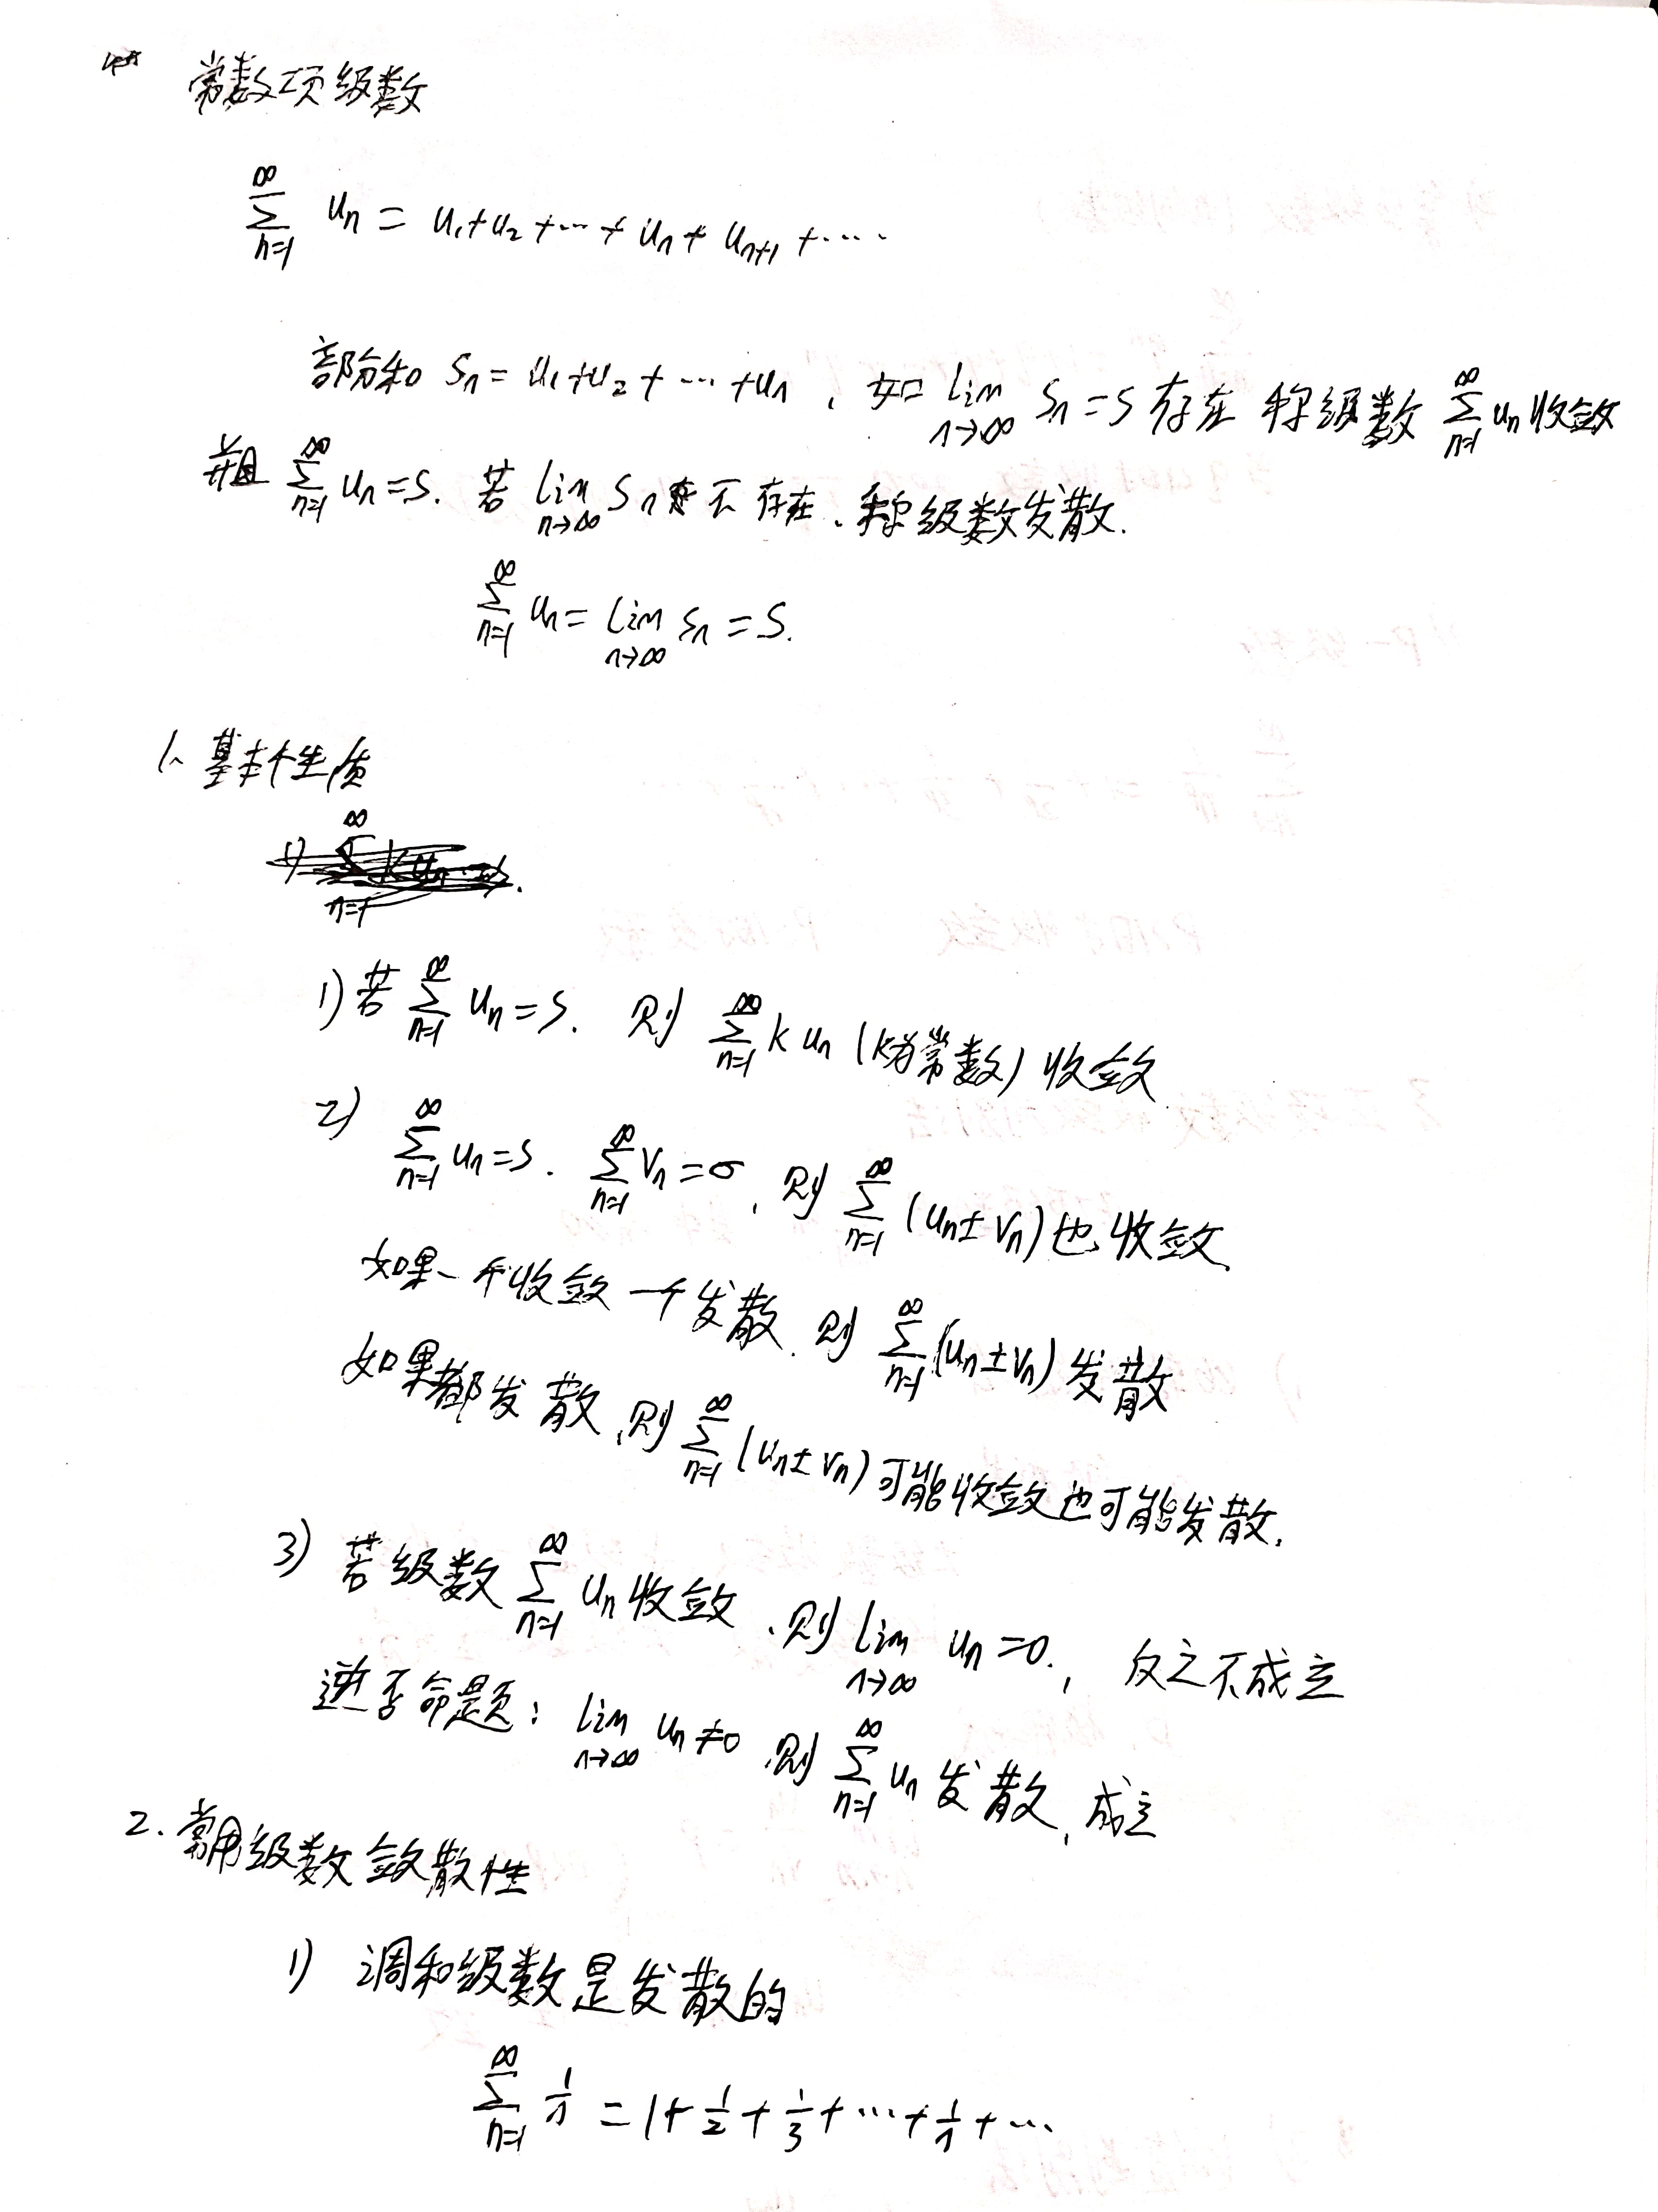 常数项级数
∞∑n=1 un = u1+u2+⋯+un+un+1+⋯⋯
部份和 Sn=u1+u2+⋯+un，如 lim n→∞ Sn=S 存在 称级数 ∞∑n=1 un 收敛
并且 ∞∑n=1 un=S. 若 lim n→∞ Sn 不存在、称级数发散.
∞∑n=1 un= lim n→∞ Sn =S.
1、基本性质
1) 若 ∞∑n=1 un=S. 则 ∞∑n=1 k un (k为常数) 收敛
2) ∞∑n=1 un=S. ∞∑n=1 Vn=σ, 则 ∞∑n=1 (un±Vn) 也收敛.
如果一个收敛一个发散. 则 ∞∑n=1 (un±Vn) 发散
如果都发散, 则 ∞∑n=1 (un±Vn) 可能收敛也可能发散.
3) 若级数 ∞∑n=1 un 收敛、则 lim n→∞ un=0., 反之不成立
逆否命题: lim n→∞ un≠0 则 ∞∑n=1 un 发散, 成立
2. 常用级数敛散性
1) 调和级数是发散的
∞∑n=1 1/n =1+1/2+1/3+⋯+1/n+⋯